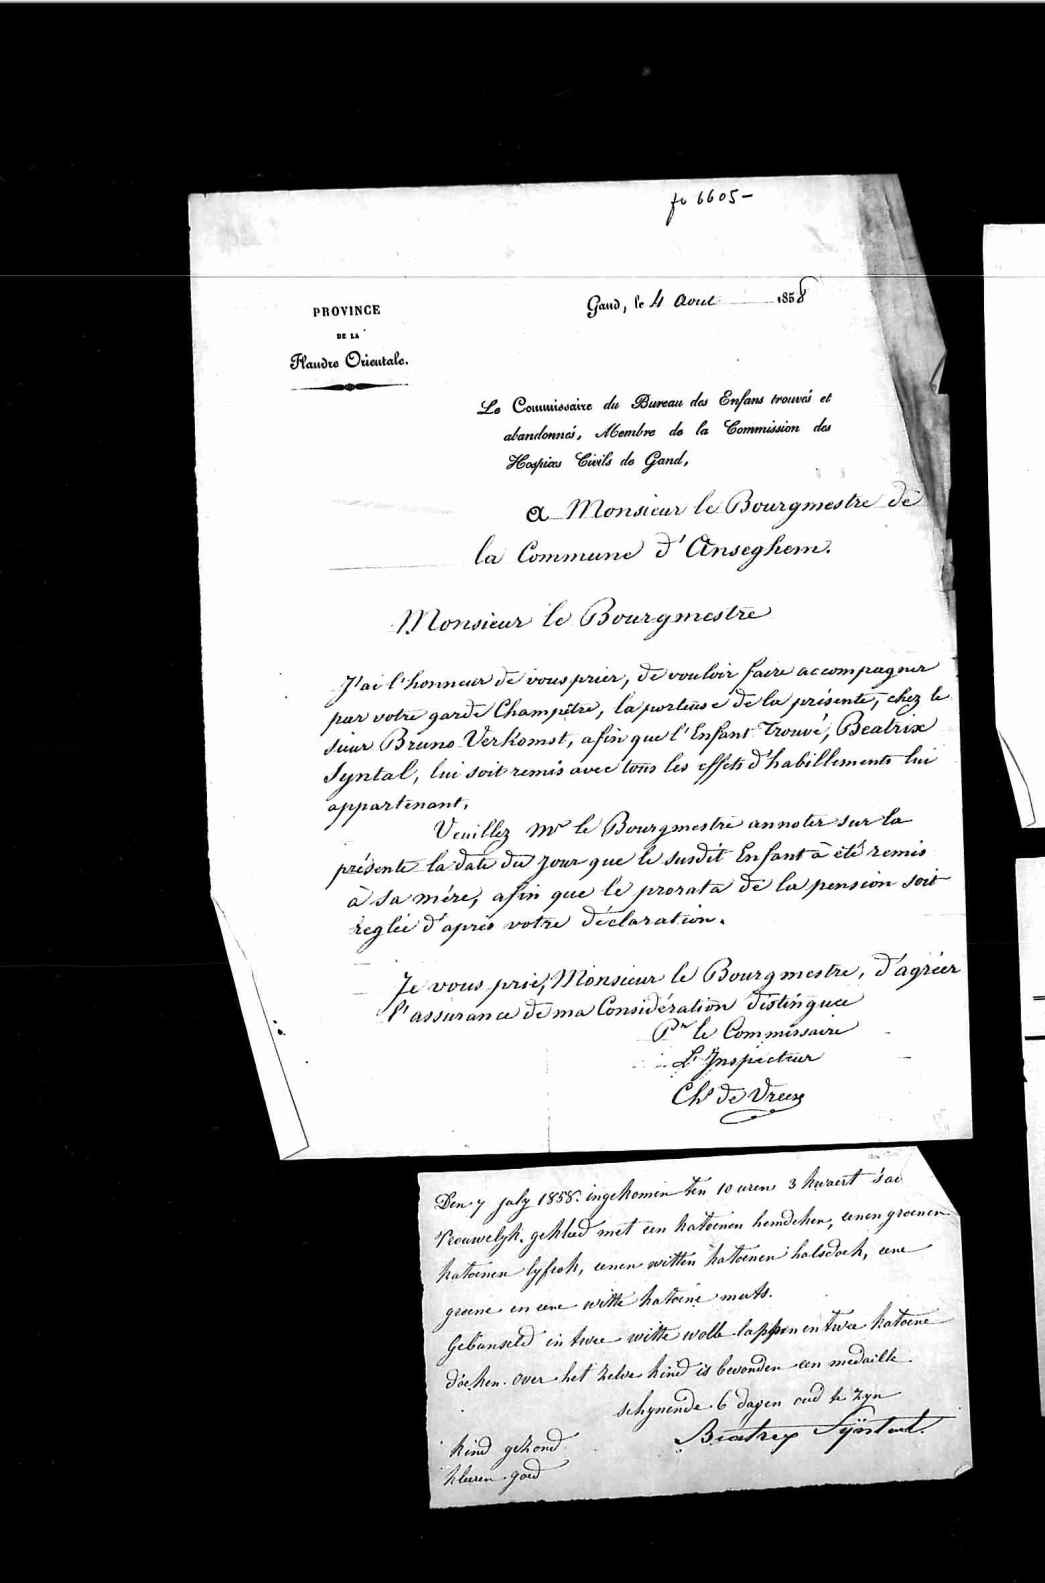 fo 6605-
PROVINCE
DE LA
Flandre Orientale.
Gand, le 4 Aout 1858
Le Commissaire du Bureau des Enfans trouvés et
abandonnés, Membre de la Commission des
Hospices Civils de Gand,
A Monsieur le Bourgmestre de
la Commune d'Anseghem.
Monsieur le Bourgmestre
J'ai l'honneur de vous prier, de vouloir faire accompagner
par votre garde Champêtre, la porteuse de la présente, chez le
sieur Bruno Verkomst, afin que l'Enfant Trouvé, Beatrix
Syntal, lui soit remis avec tous les effets d'habillements lui
appartenant.
Veuillez Mr le Bourgmestre annoter sur la
présente la date du jour que le susdit Enfant a été remis
à sa mére, afin que le prorata de la pension soit
reglée d'après votre déclaration.
Je vous prie, Monsieur le Bourgmestre, d'agréer
l'assurance de ma Considération distinguée
Pr le Commissaire
L'Inspecteur
Chs de Vreese
Den 7 july 1858. ingekomen ten 10 uren 3 kwaert s'av
Vrouwelyk. gekleed met een katoenen hemdeken, eenen groenen
katoenen lyfrok, eenen witten katoenen halsdoek, eene
groene en eene witte katoene muts.
Gebunseld in twee witte wolle lappen en twee katoene
doeken. over het zelve kind is bevonden een medaille.
schynende 6 dagen oud te zyn
Beatrix Syntal.
kind gezond
kleeren goed